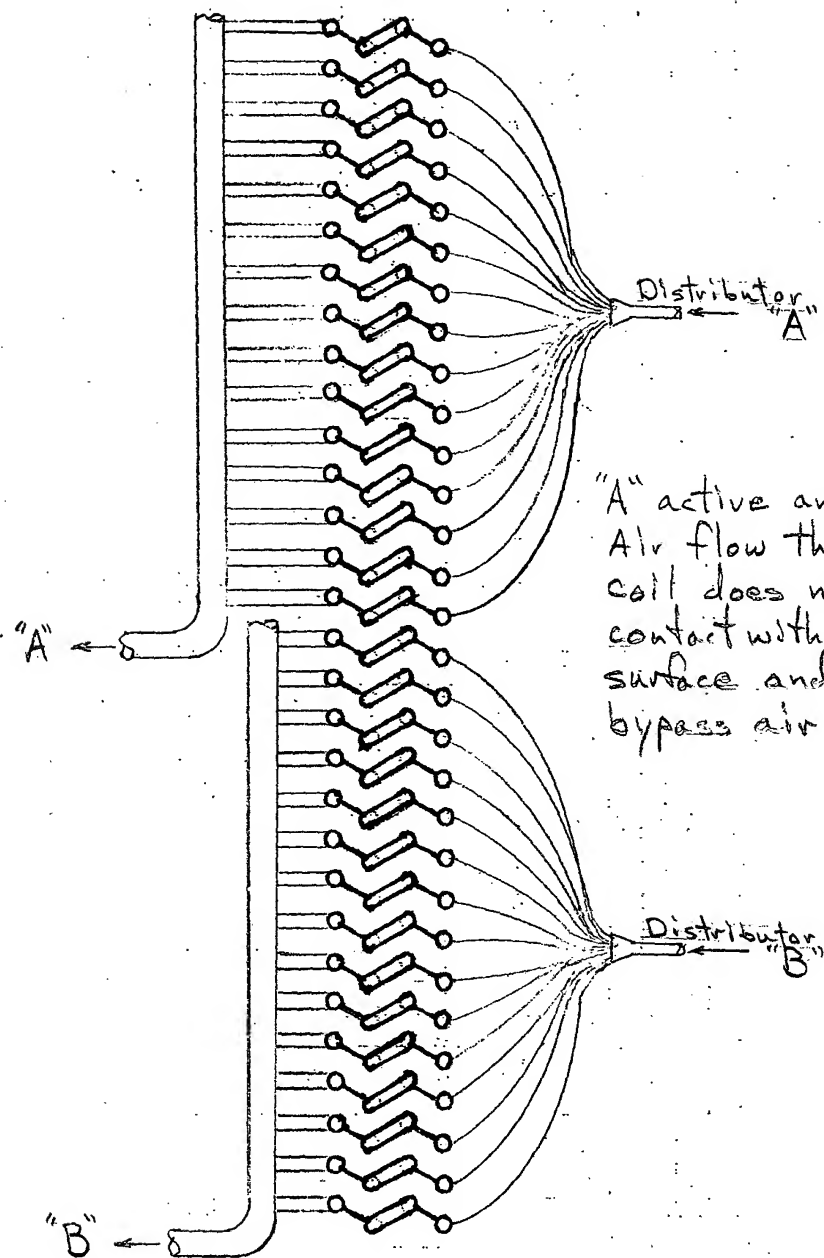 Distributor
"A"
"A" active
Air flow
coil does
contact with
surface and
bypass air
"A"
Distributor
"B"
"B"